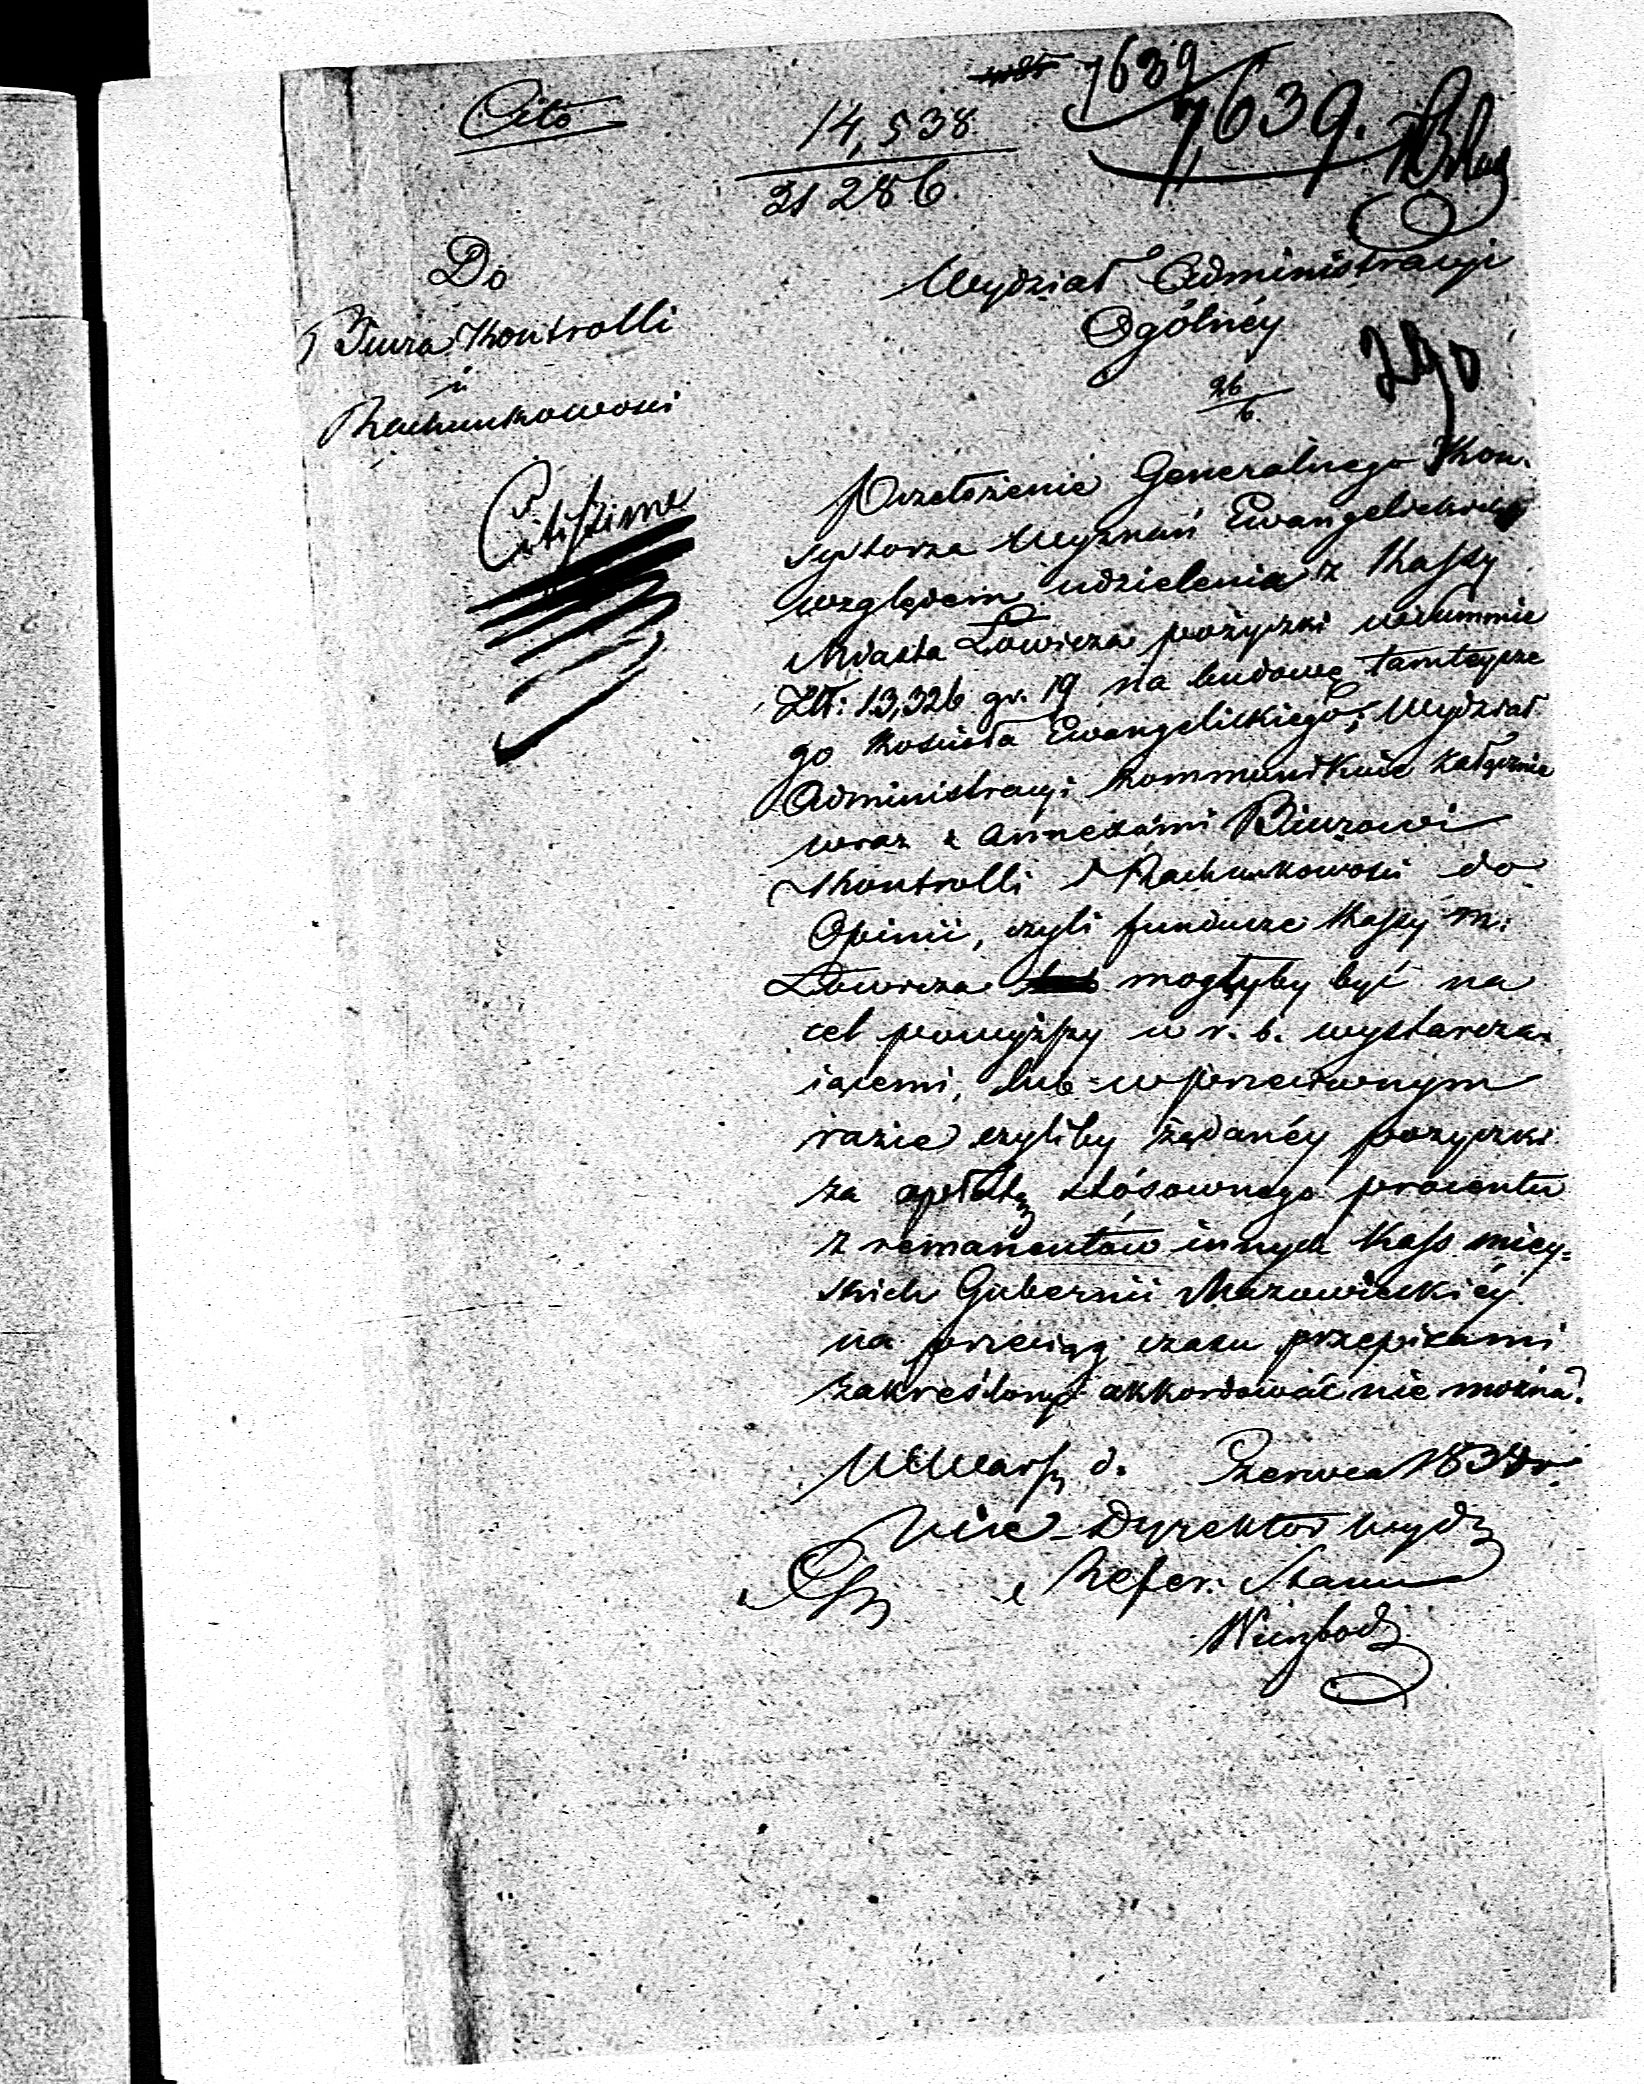 Cito
7639
14,538
7,639.
21 286.
Do
Wydział Administracyi
Biura Kontrolli
Ogólnéy
i
290
26
6.
Rachunkowości
Citissime
Przełożenie Generalnego Kon-
systorza Wyznań Ewangelickich
względem udzielenia z Kassy
Miasta Łowicza pożyczki w summie
Złt: 13,326 gr. 19 na budowę tamteysze
go Kościoła Ewangelickiego, Wydział
Administracyi kommunikuie załącznie
wraz z annexami Biurowi
Kontrolli i Rachunkowości do
Opinii, czyli fundusze Kassy m:
Łowicza mogłyby być na
cel powyższy w r. b. wystarcza-
iącemi, lub w przeciwnym
razie czyliby żądanéy pożyczki
za opłatą stósownego procentu
z remanentów innych Kass miey-
skich Gubernii Mazowieckiéy
na przeciąg czasu przepisami
zakreślony akkordować nie można?
W Warsz. d. Czerwca 1834 r.
Vice-Dyrektor Wydz
Refer: Stanu